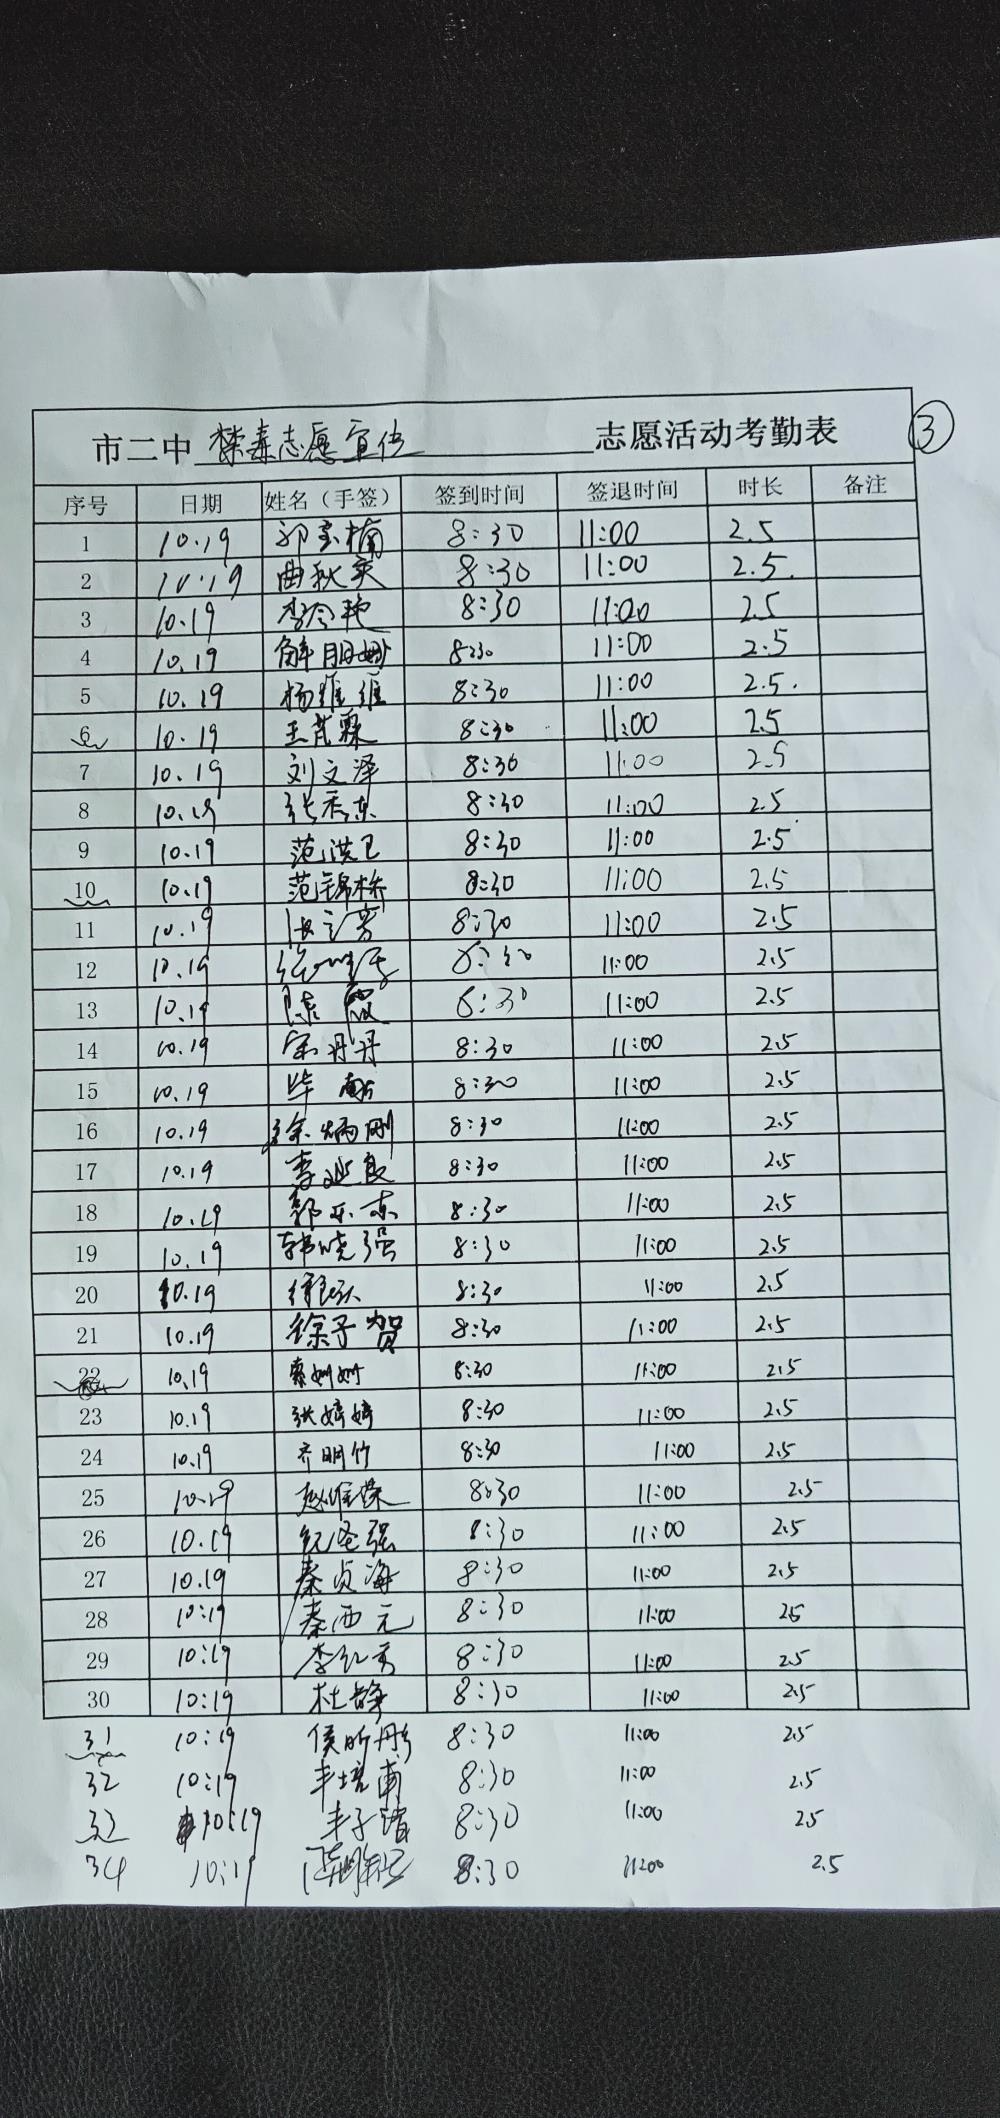 市二中 禁毒志愿宣传 志愿活动考勤表 ③
序号 日期 姓名（手签） 签到时间 签退时间 时长 备注
1 10.19 8:30 11:00 2.5
2 10.19 曲秋英 8:30 11:00 2.5.
3 10.19 李令艳 8:30 11:00 2.5
4 10.19 解朋娜 8:30 11:00 2.5
5 10.19 杨维维 8:30 11:00 2.5.
6 10.19 王芃霖 8:30 11:00 2.5
7 10.19 刘文泽 8:30 11:00 2.5
8 10.19 张秀东 8:30 11:00 2.5
9 10.19 范洪卫 8:30 11:00 2.5
10 10.19 范锦桥 8:30 11:00 2.5
11 10.19 8:30 11:00 2.5
12 10.19 11:00 2.5
13 10.19 陈霞 11:00 2.5
14 10.19 宋丹丹 8:30 11:00 2.5
15 10.19 毕 8:30 11:00 2.5
16 10.19 徐炳刚 8:30 11:00 2.5
17 10.19 李延良 8:30 11:00 2.5
18 10.19 8:30 11:00 2.5
19 10.19 韩晓强 8:30 11:00 2.5
20 10.19 8:30 11:00 2.5
21 10.19 徐子贺 8:30 11:00 2.5
22 10.19 索姗姗 8:30 11:00 2.5
23 10.19 张婷婷 8:30 11:00 2.5
24 10.19 齐明竹 8:30 11:00 2.5
25 10.19 8:30 11:00 2.5
26 10.19 8:30 11:00 2.5
27 10.19 秦贞海 8:30 11:00 2.5
28 10:19 秦西元 8:30 11:00 25
29 10:19 李红秀 8:30 11:00 2.5
30 10:19 杜静 8:30 11:00 2.5
31 10:19 侯昕彤 8:30 11:00 2.5
32 10:19 丰培甫 8:30 11:00 2.5
33 10:19 8:30 11:00 2.5
34 10:19 8:30 11:00 2.5